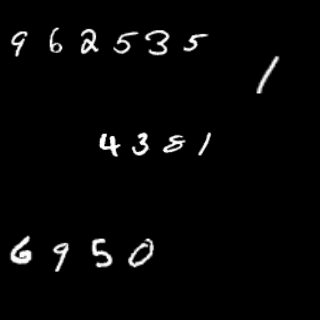 962535
1
4381
6950